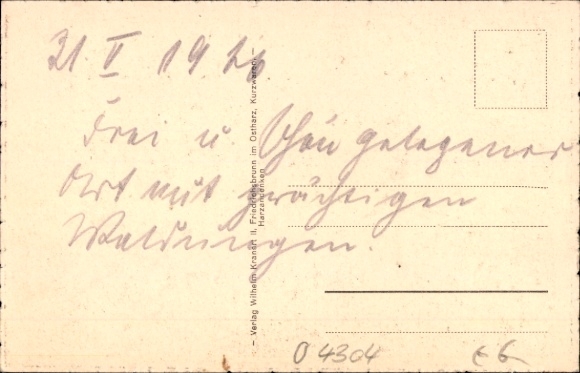 21. V 1926
Frei u. schön gelegener
Ort mit prächtigen
Waldungen.
– Verlag Wilhelm Kranert II, Friedrichsbrunn im Ostharz, Kurzwaren –
Harzandenken
O 4304